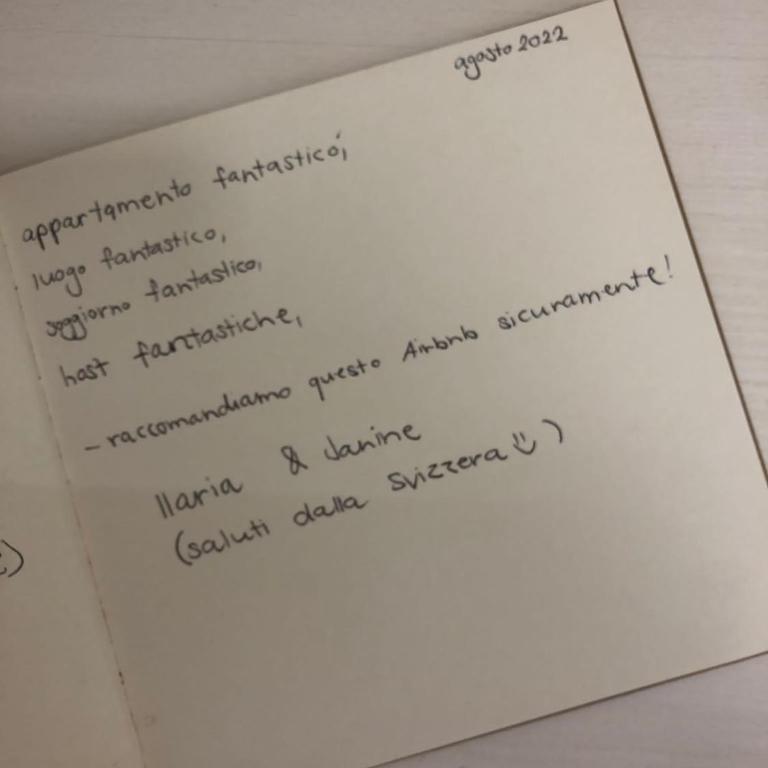 agosto 2022
appartamento fantastico,
luogo fantastico,
soggiorno fantastico,
host fantastiche,
- raccomandiamo questo Airbnb sicuramente!
Ilaria & Janine
(saluti dalla Svizzera )